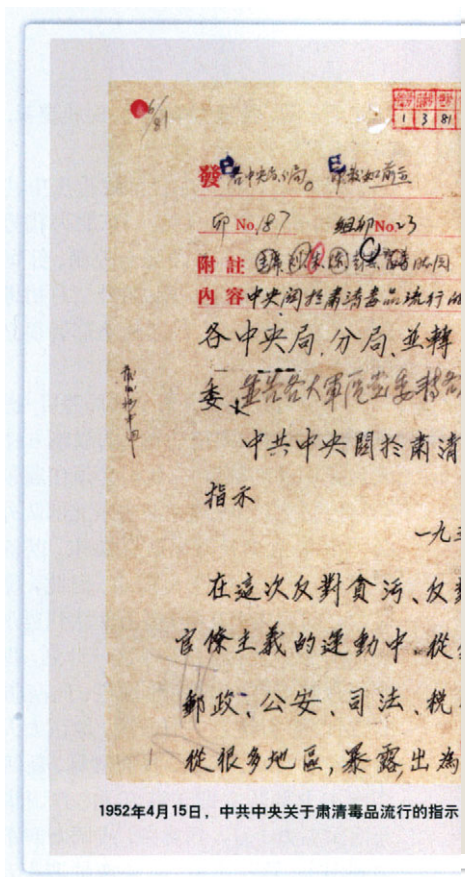 6/81
1 3 81
發 各中央局分局。
卯 No.187 組卯No.23
附註
內容 中央關於肅清毒品流行的
各中央局、分局、並轉
委、並告各大軍區黨委轉各
中共中央關於肅清
指示
一九五
在這次反對貪污、反對
官僚主義的運動中、從
郵政、公安、司法、稅
從很多地區,暴露出為
1952年4月15日,中共中央关于肃清毒品流行的指示